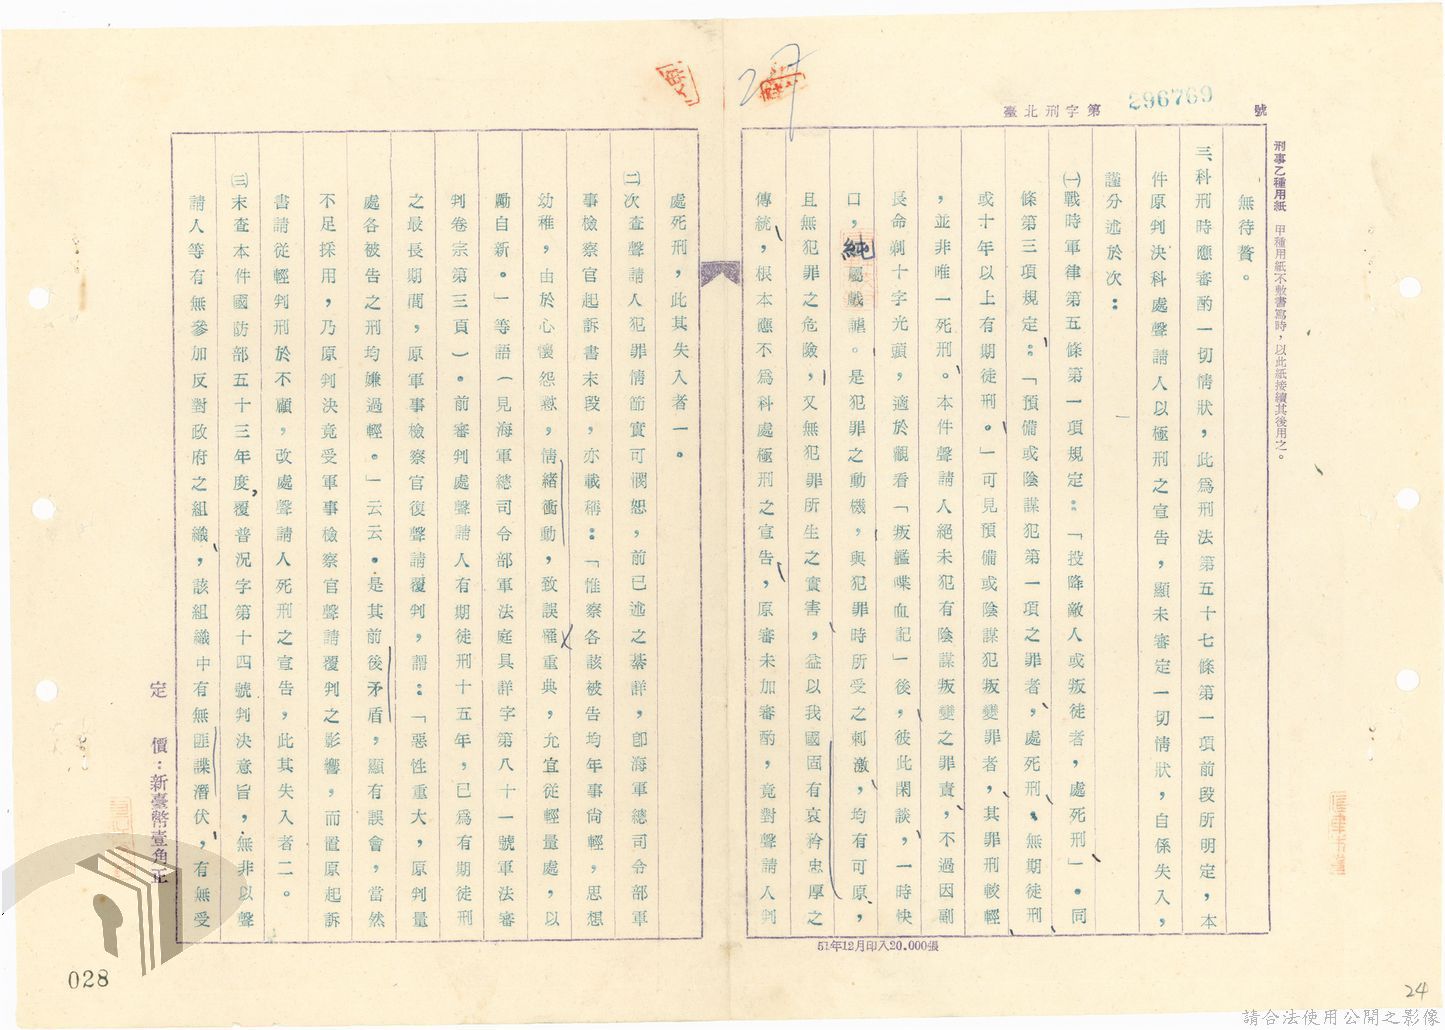 臺北刑字第 296769 號
刑事乙種用紙　甲種用紙不敷書寫時，以此紙接續其後用之。
無待贅。
三、科刑時應審酌一切情狀，此爲刑法第五十七條第一項前段所明定，本
件原判決科處聲請人以極刑之宣告，顯未審定一切情狀，自係失入，
謹分述於次：
㈠戰時軍律第五條第一項規定：「投降敵人或叛徒者，處死刑」。同
條第三項規定：「預備或陰謀犯第一項之罪者，處死刑、無期徒刑
或十年以上有期徒刑。」可見預備或陰謀犯叛變罪者，其罪刑較輕
，並非唯一死刑。本件聲請人絕未犯有陰謀叛變之罪責，不過因副
長命剃十字光頭，適於觀看「叛艦喋血記」後，彼此閑談，一時快
口，純屬戲謔。是犯罪之動機，與犯罪時所受之刺激，均有可原，
且無犯罪之危險，又無犯罪所生之實害，益以我國固有哀矜忠厚之
傳統，根本應不爲科處極刑之宣告，原審未加審酌，竟對聲請人判
51年12月印入20.000張
處死刑，此其失入者一。
㈡次查聲請人犯罪情節實可憫恕，前已述之綦詳，卽海軍總司令部軍
事檢察官起訴書末段，亦載稱：「惟察各該被告均年事尙輕，思想
幼稚，由於心懷怨懟，情緖衝動，致誤罹重典，允宜從輕量處，以
勵自新。」等語（見海軍總司令部軍法庭具詳字第八十一號軍法審
判卷宗第三頁）。前審判處聲請人有期徒刑十五年，已爲有期徒刑
之最長期間，原軍事檢察官復聲請覆判，謂：「惡性重大，原判量
處各被告之刑均嫌過輕。」云云。是其前後矛盾，顯有誤會，當然
不足採用，乃原判決竟受軍事檢察官聲請覆判之影響，而置原起訴
書請從輕判刑於不顧，改處聲請人死刑之宣告，此其失入者二。
㈢末查本件國防部五十三年度覆普況字第十四號判決意旨，無非以聲
請人等有無參加反對政府之組織，該組織中有無匪諜潛伏，有無受
定　　價：新臺幣壹角正
028
24
請合法使用公開之影像